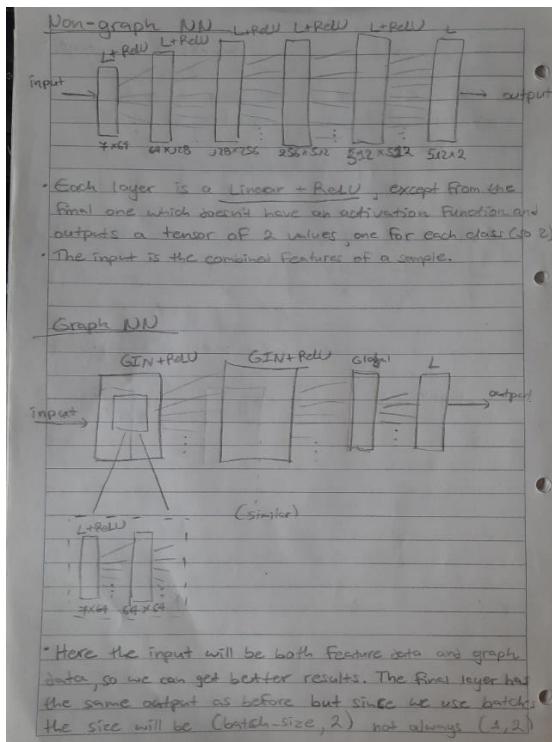 Non-graph NN
L+ReLU L+ReLU L+ReLU L+ReLU L+ReLU L
input output
7×64 64×128 128×256 256×512 512×512 512×2
• Each layer is a Linear + ReLU, except from the
final one which doesn't have an activation function and
outputs a tensor of 2 values, one for each class (so 2)
• The input is the combined features of a sample.
Graph NN
GIN+ReLU GIN+ReLU Global L
input output
(similar)
L+ReLU
7×64 64×64
• Here the input will be both feature data and graph
data, so we can get better results. The final layer has
the same output as before but since we use batches
the size will be (batch-size, 2) not always (1,2)